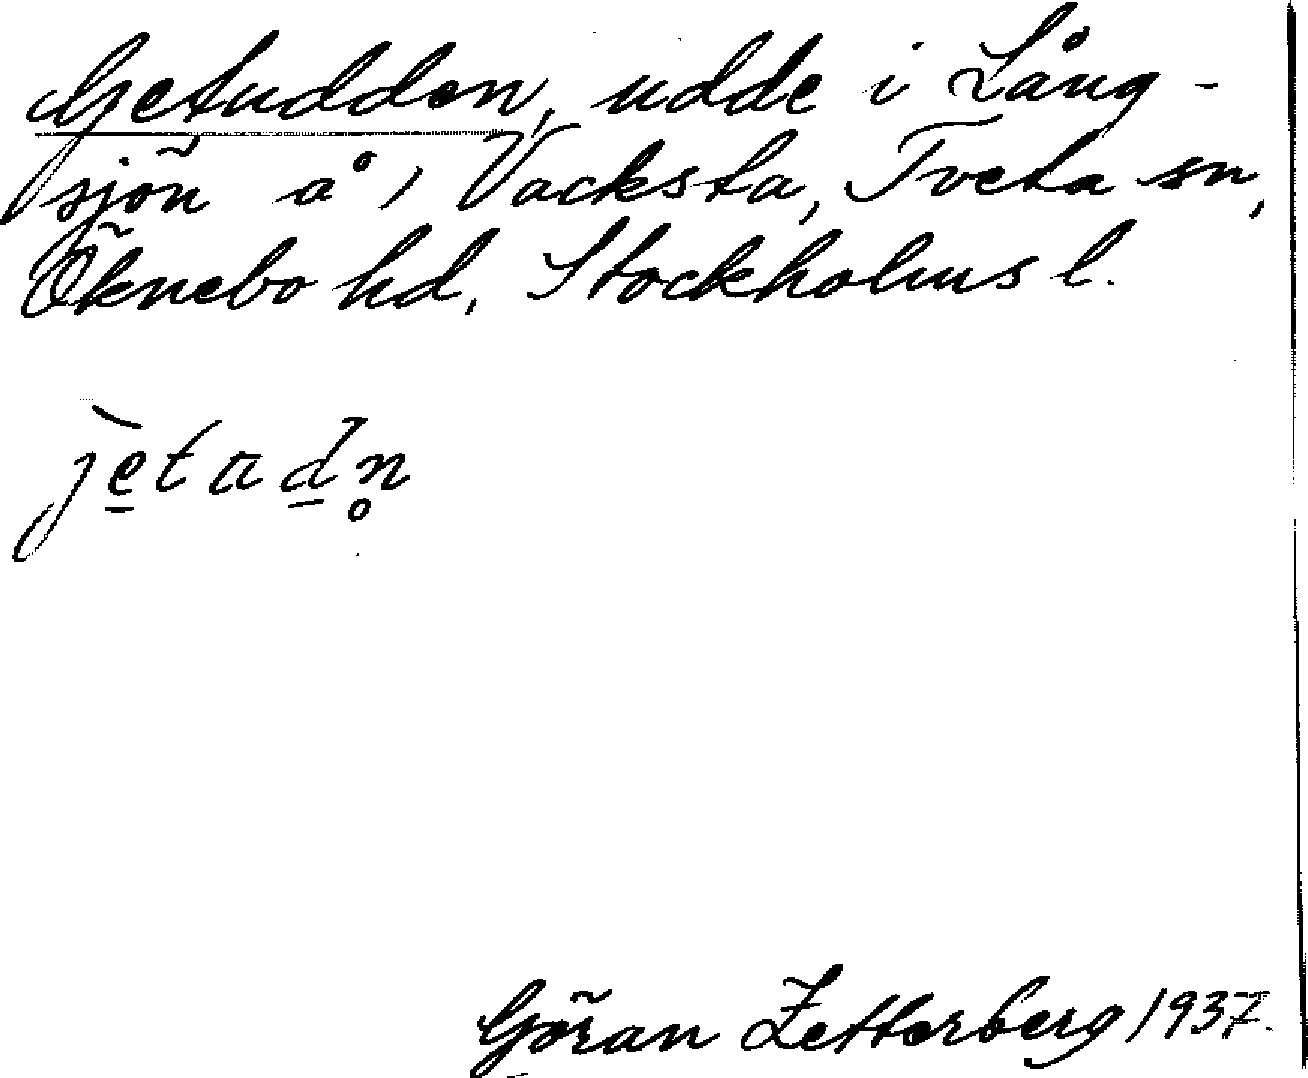 Getudden, udde i Lång-
sjön å, Vacksta, Tveta sn,
Öknebo hd, Stockholms l.
jètadn̥
Göran Zetterberg 1937.